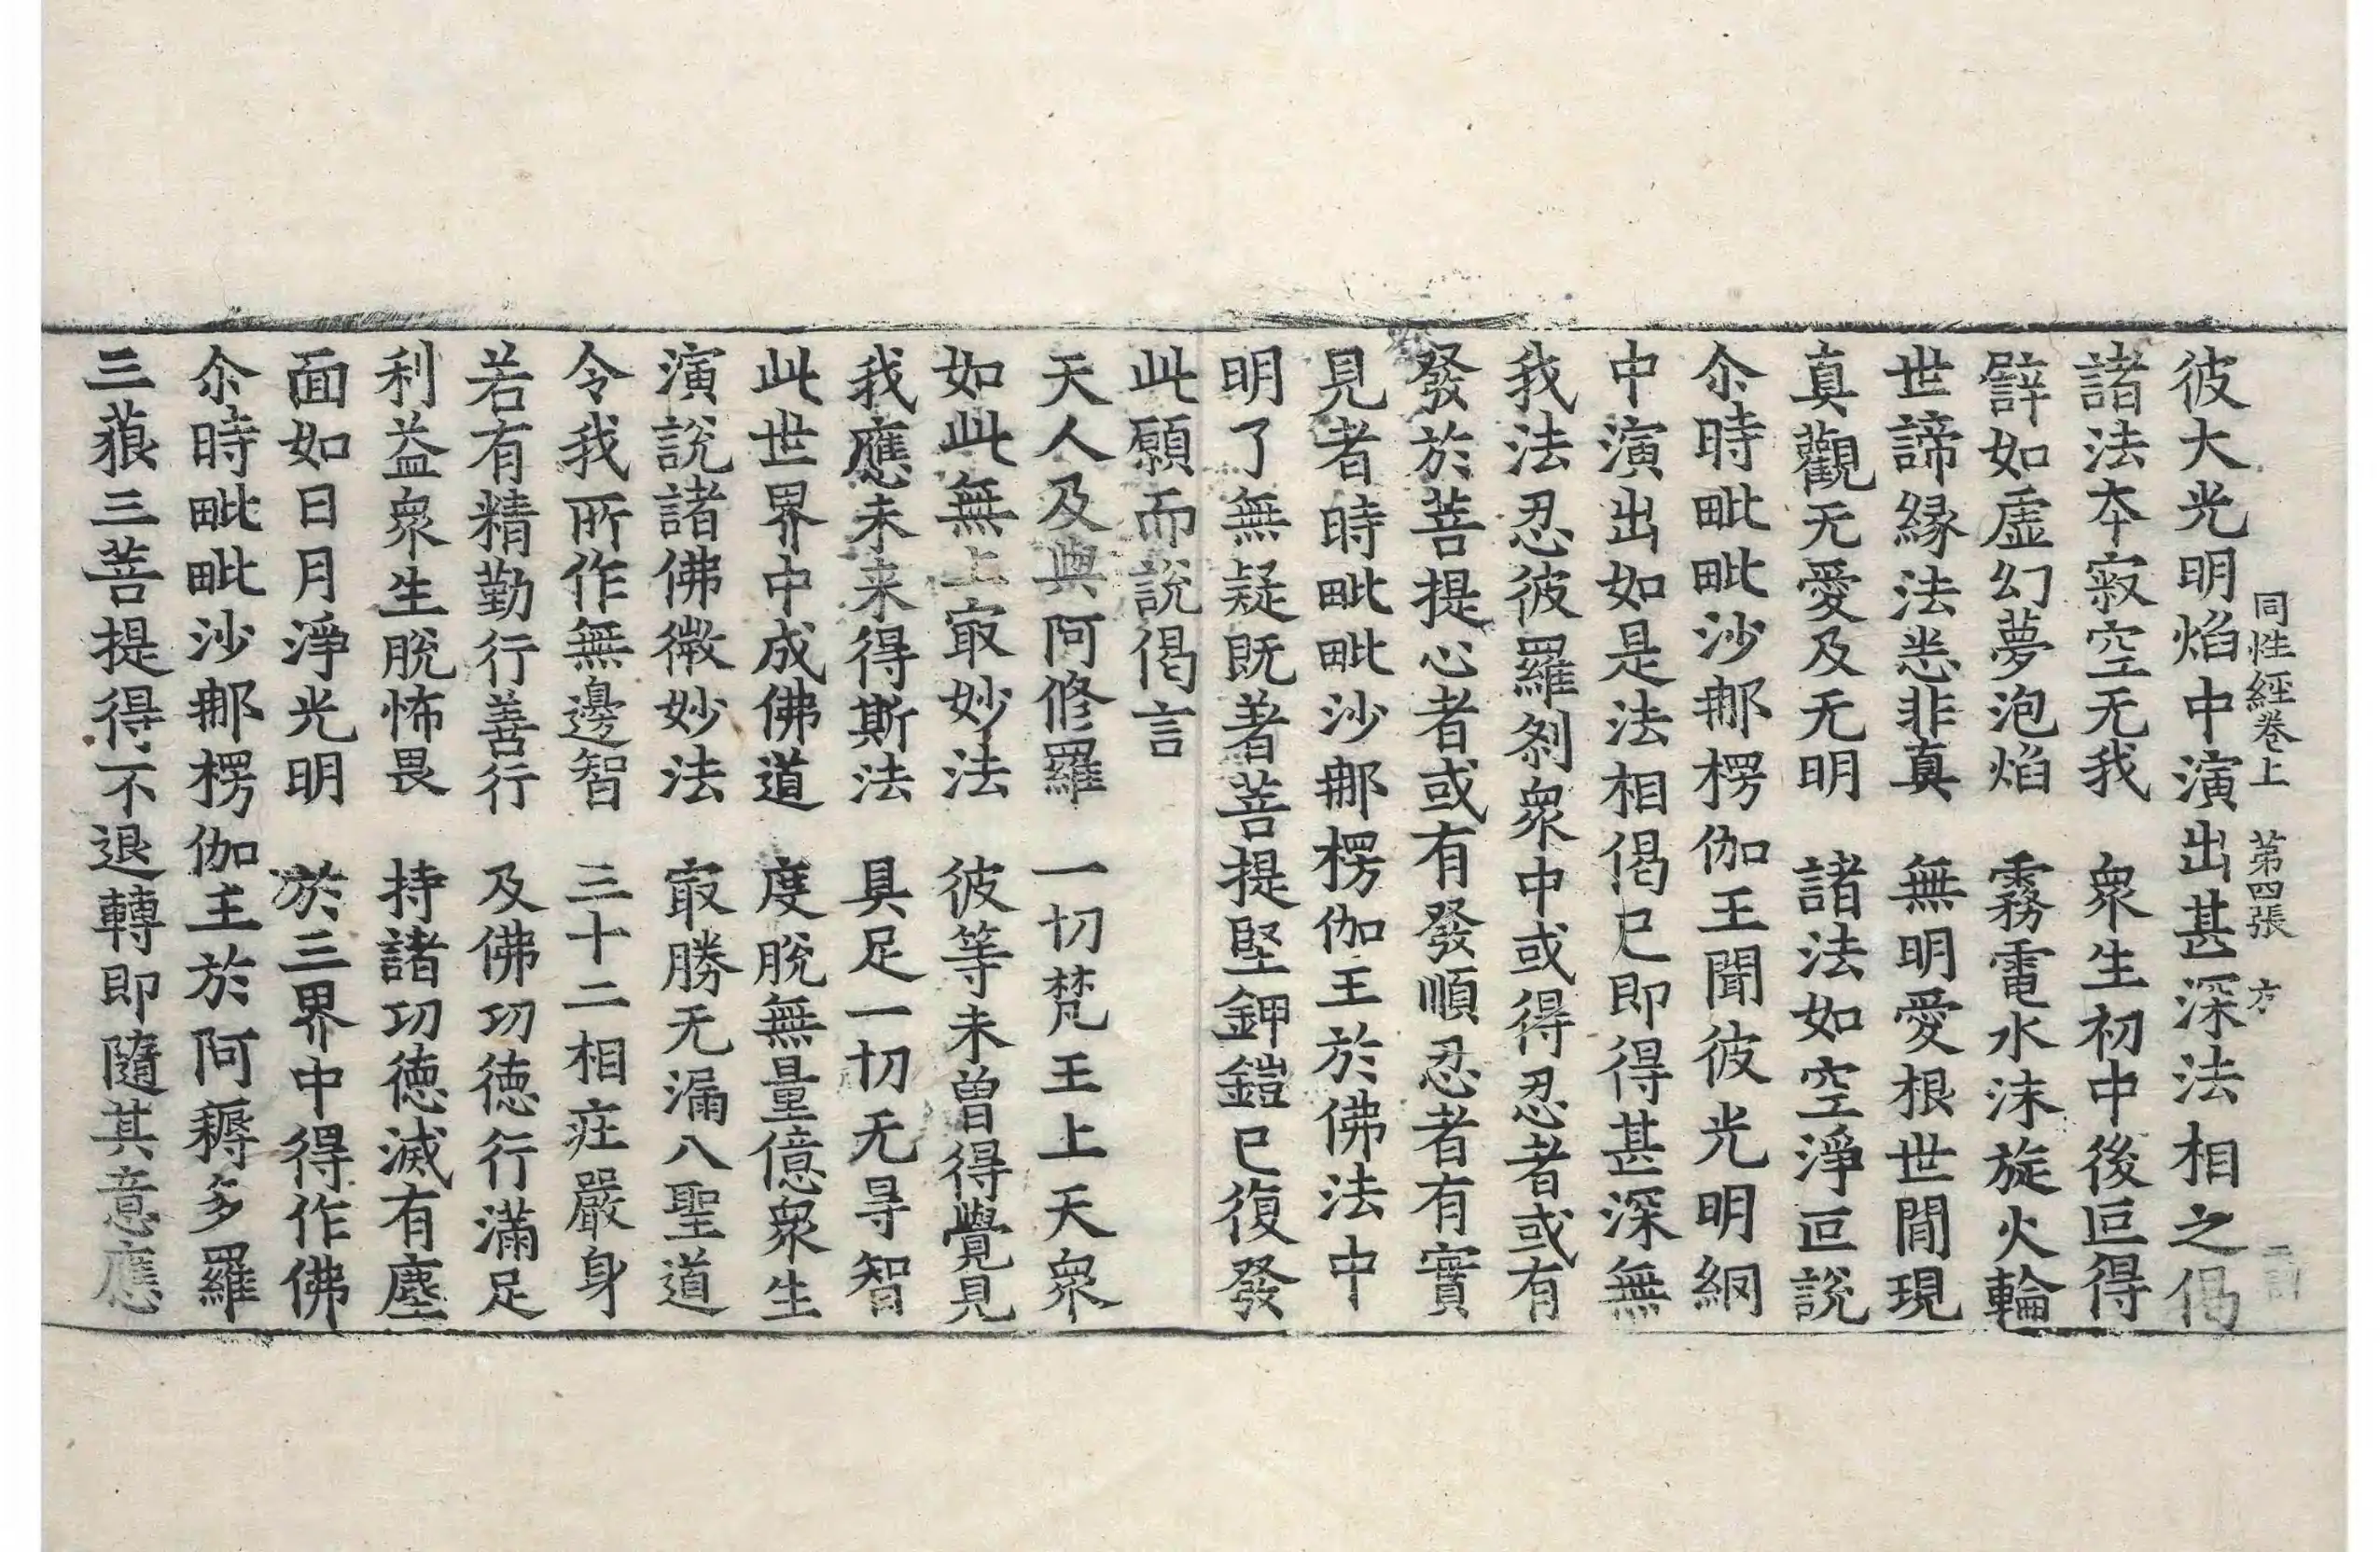 同性經卷上 第四張 方
彼大光明焰中演出甚深法相之偈
諸法夲寂空无我 衆生初中後叵得
譬如虛幻夢泡焰 霧電水沫旋火輪
世諦緣法悉非真 無明愛根世間現
真觀无愛及无明 諸法如空淨叵說
尒時毗毗沙那楞伽王聞彼光明網
中演出如是法相偈已即得甚深無
我法忍彼羅剎衆中或得忍者或有
發於菩提心者或有發順忍者有實
見者時毗毗沙那楞伽王於佛法中
明了無疑既著菩提堅鉀鎧已復發
此願而說偈言
天人及與阿修羅 一切梵王上天衆
如此無上㝡妙法 彼等未曾得覺見
我應未来得斯法 具足一切无㝵智
此世界中成佛道 度脫無量億衆生
演說諸佛微妙法 㝡勝无漏八聖道
令我所作無邊智 三十二相莊嚴身
若有精勤行善行 及佛功德行滿足
利益衆生脫怖畏 持諸功德滅有塵
面如日月淨光明 於三界中得作佛
尒時毗毗沙那楞伽王於阿耨多羅
三藐三菩提得不退轉即隨其意應